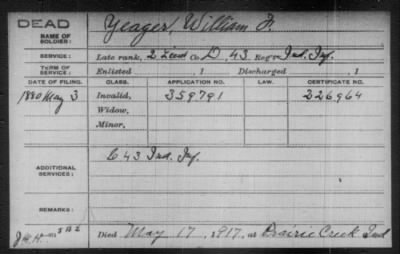 DEAD
NAME OF SOLDIER: Yeager, William F.
SERVICE: Late rank, 2 Lieut Co. D, 43 Reg't Ind. Inf.
TERM OF SERVICE: Enlisted 1 Discharged 1
DATE OF FILING. CLASS. APPLICATION NO. LAW. CERTIFICATE NO.
1880 May 3 Invalid, 359791 226964
Widow,
Minor,
ADDITIONAL SERVICES: C 43 Ind. Inf.
REMARKS:
Died May 17, 1917, at Prairie Creek Ind